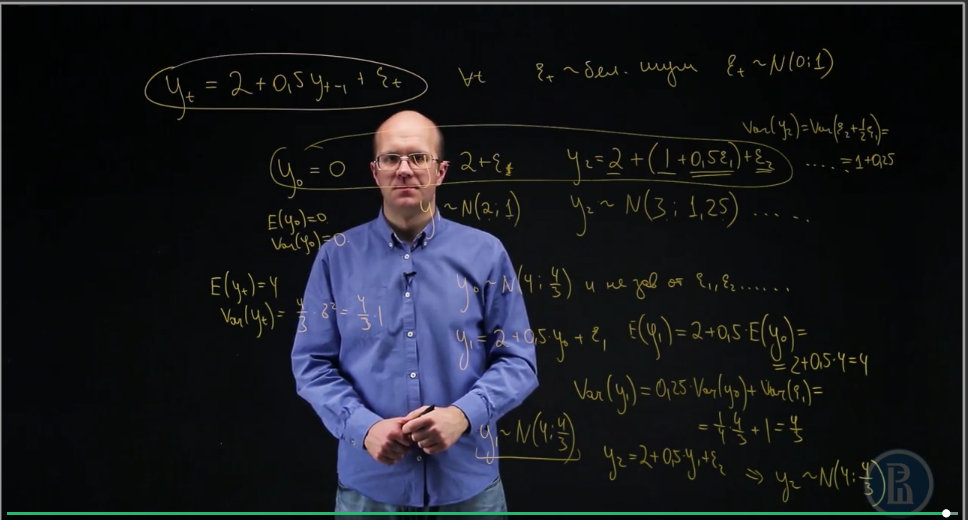 y_t = 2 + 0,5 y_{t-1} + ε_t ∀t ε_t ~ бел. шум ε_t ~ N(0;1)
Var(y_2) = Var(ε_2 + 1/2 ε_1) =
y_0 = 0 2 + ε_1 y_2 = 2 + (1 + 0,5ε_1) + ε_2 .... = 1 + 0,25
E(y_0) = 0 y ~ N(2; 1) y_2 ~ N(3; 1,25) .....
Var(y_0) = 0.
E(y_t) = 4 y_0 ~ N(4; 4/3) и не зав от ε_1, ε_2 ......
Var(y_t) = 4/3 · δ² = 4/3 · 1
y_1 = 2 + 0,5·y_0 + ε_1 E(y_1) = 2 + 0,5·E(y_0) =
= 2 + 0,5·4 = 4
Var(y_1) = 0,25·Var(y_0) + Var(ε_1) =
= 1/4 · 4/3 + 1 = 4/3
y_1 ~ N(4; 4/3) y_2 = 2 + 0,5 y_1 + ε_2 ⇒ y_2 ~ N(4; 4/3)